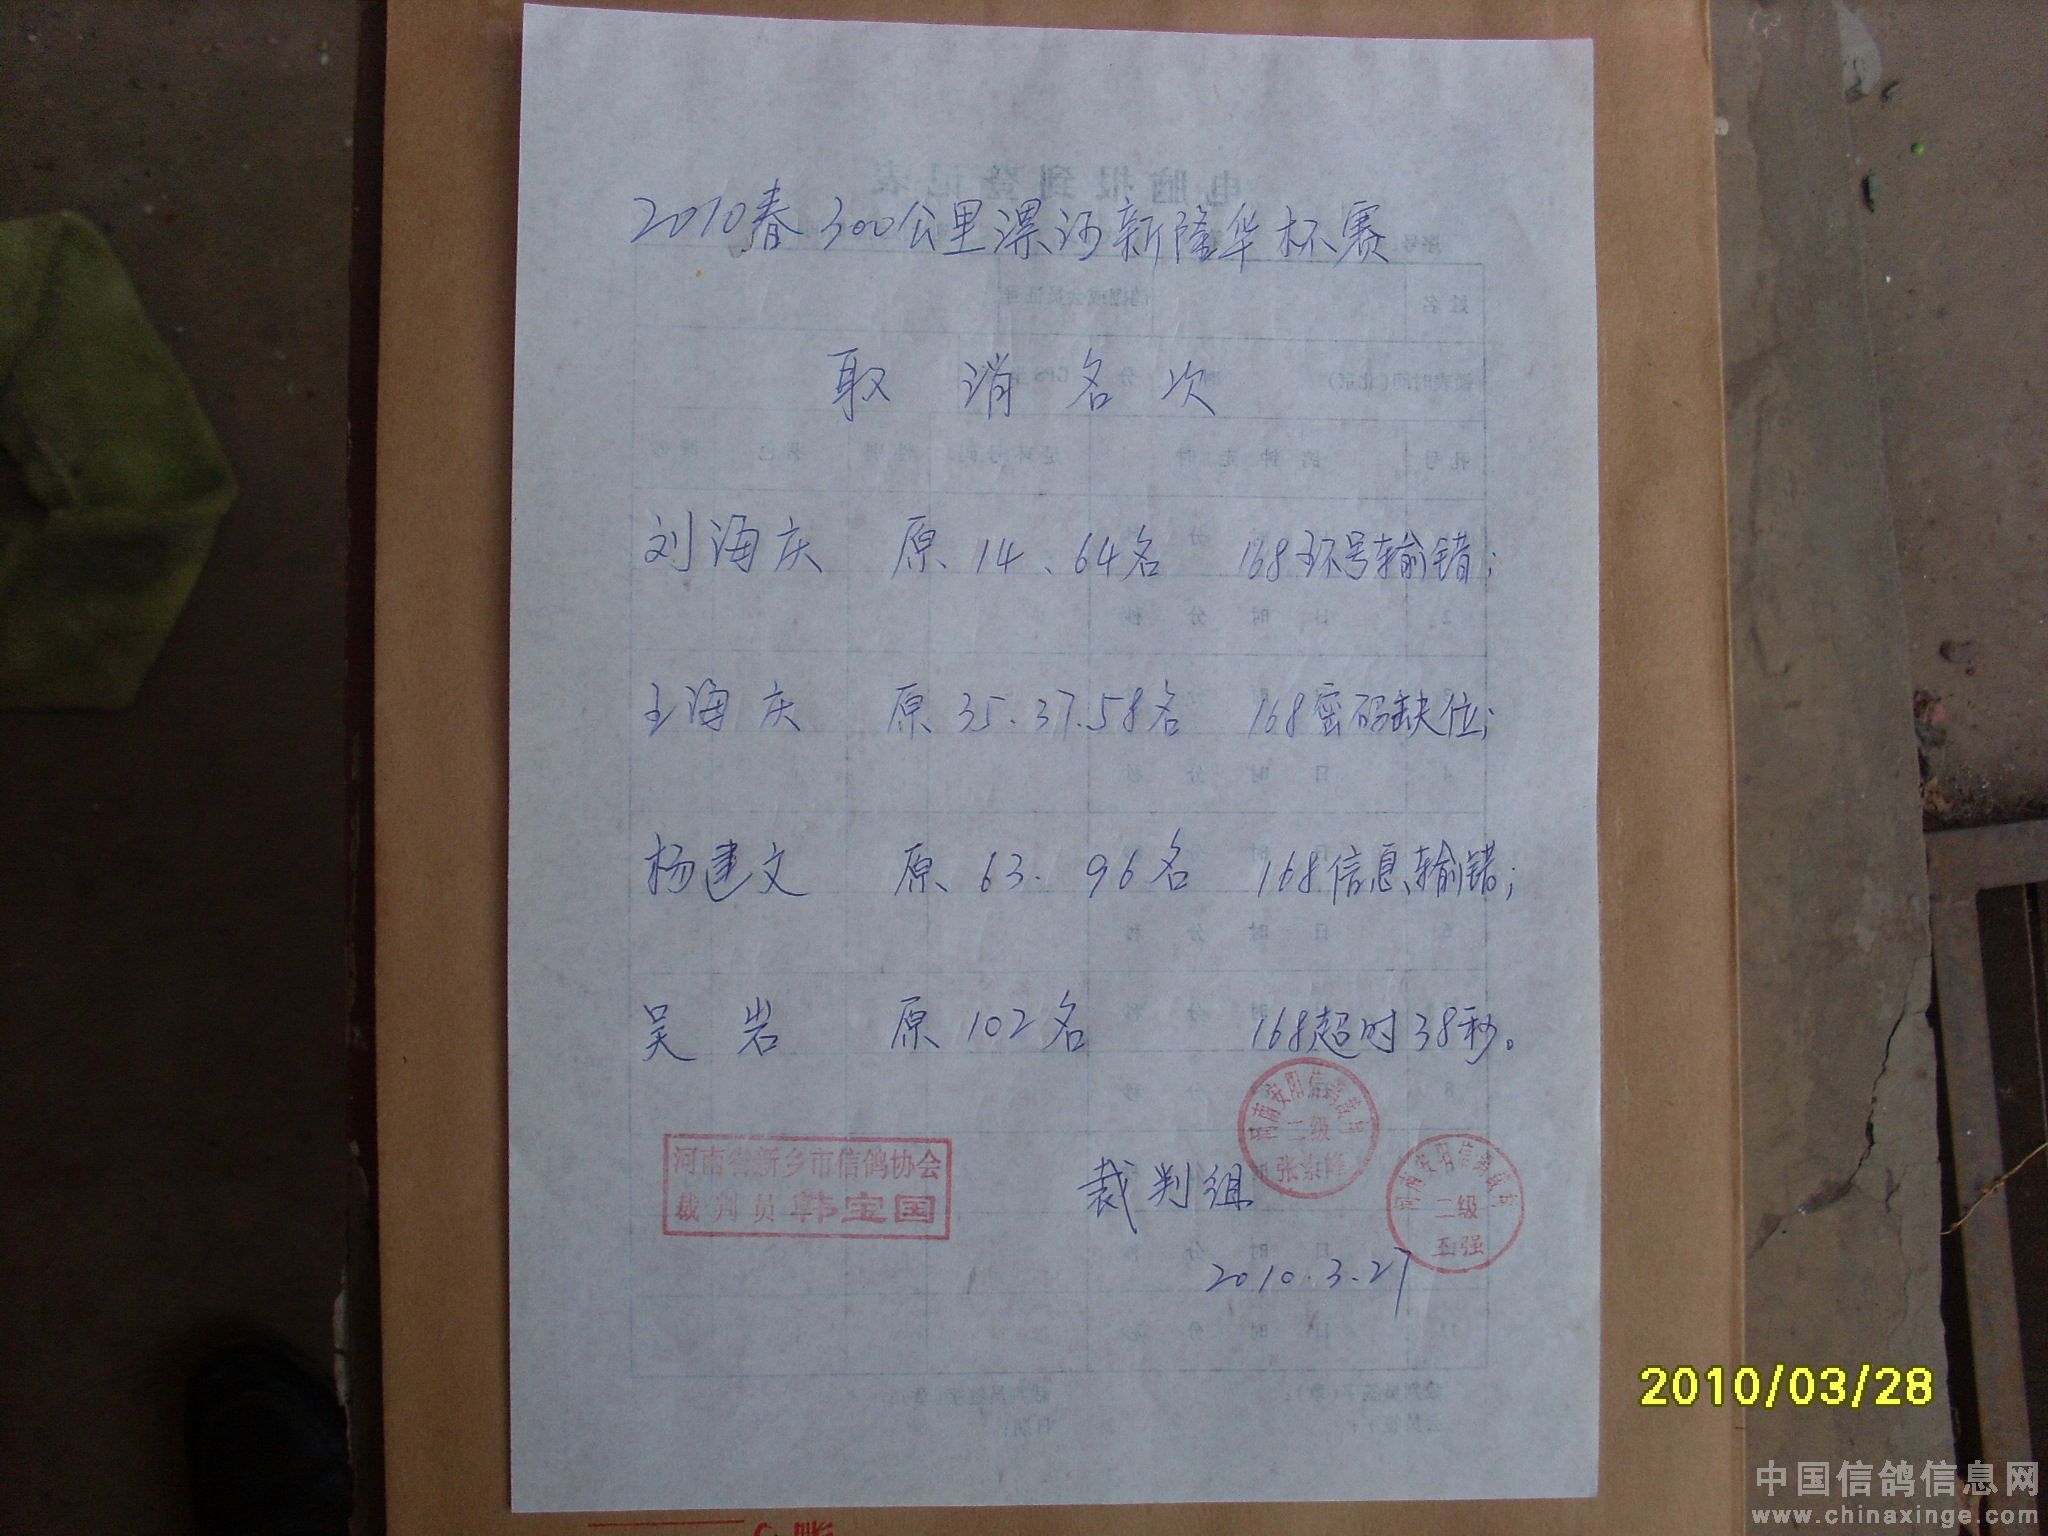 2010春300公里漯河新隆华杯赛
取消名次
刘海庆 原14、64名 168环号输错;
王海庆 原35.37.58名 168密码缺位;
杨建文 原63.96名 168信息输错;
吴岩 原102名 168超时38秒。
河南省新乡市信鸽协会
裁判员韩宝国
裁判组
二级
二级
王强
2010.3.27
2010/03/28
中国信鸽信息网
www.chinaxinge.com